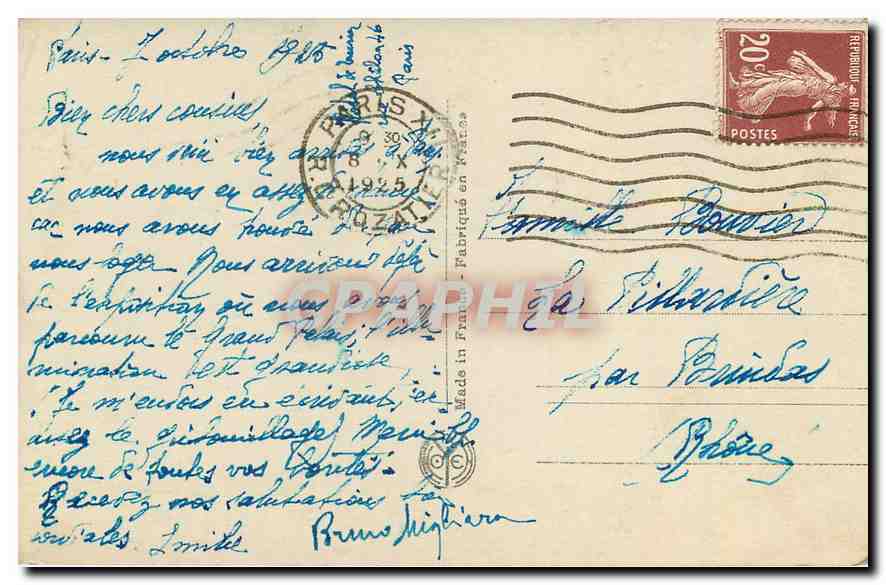 Paris - 7 octobre 1925
Bien chers cousins,
nous voici bien arrivés à
et nous avons eu assez
car nous avons trouvé
nous loger Nous arrivons déjà
de l'exposition où nous avons
parcouru le Grand Palais, l'illu
mination est grandiose
Je m'endors en écrivant,
assez le Merci
encore de toutes vos bontés.
Recevez nos salutations
cordiales. Emilie
Bruno Migliara
Paris
PARIS XII
9 30
8 X
1925
R. CROZATIER
20c
REPUBLIQUE FRANÇAISE
POSTES
Made in France - Fabriqué en France
CPAPHIL
Famille Bouvier
La Pillardière
par Brindas
(Rhône)